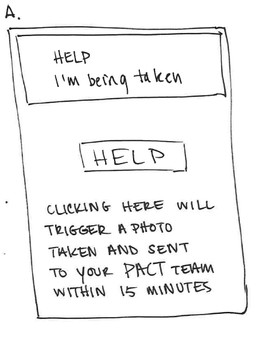 A.
HELP
I'm being taken
HELP
CLICKING HERE WILL
TRIGGER A PHOTO
TAKEN AND SENT
TO YOUR PACT TEAM
WITHIN 15 MINUTES